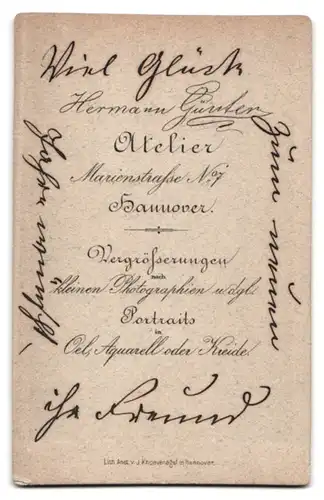 Viel Glück
Hermann Günter
Atelier
Marienstrasse No. 7
Hannover.
Vergrösserungen
nach
kleinen Photographien u. dgl.
Portraits
in
Oel, Aquarell oder Kreide.
ihr Freund
Lith. Anst. v. J. Knoevenagel in Hannover.
zum neuen